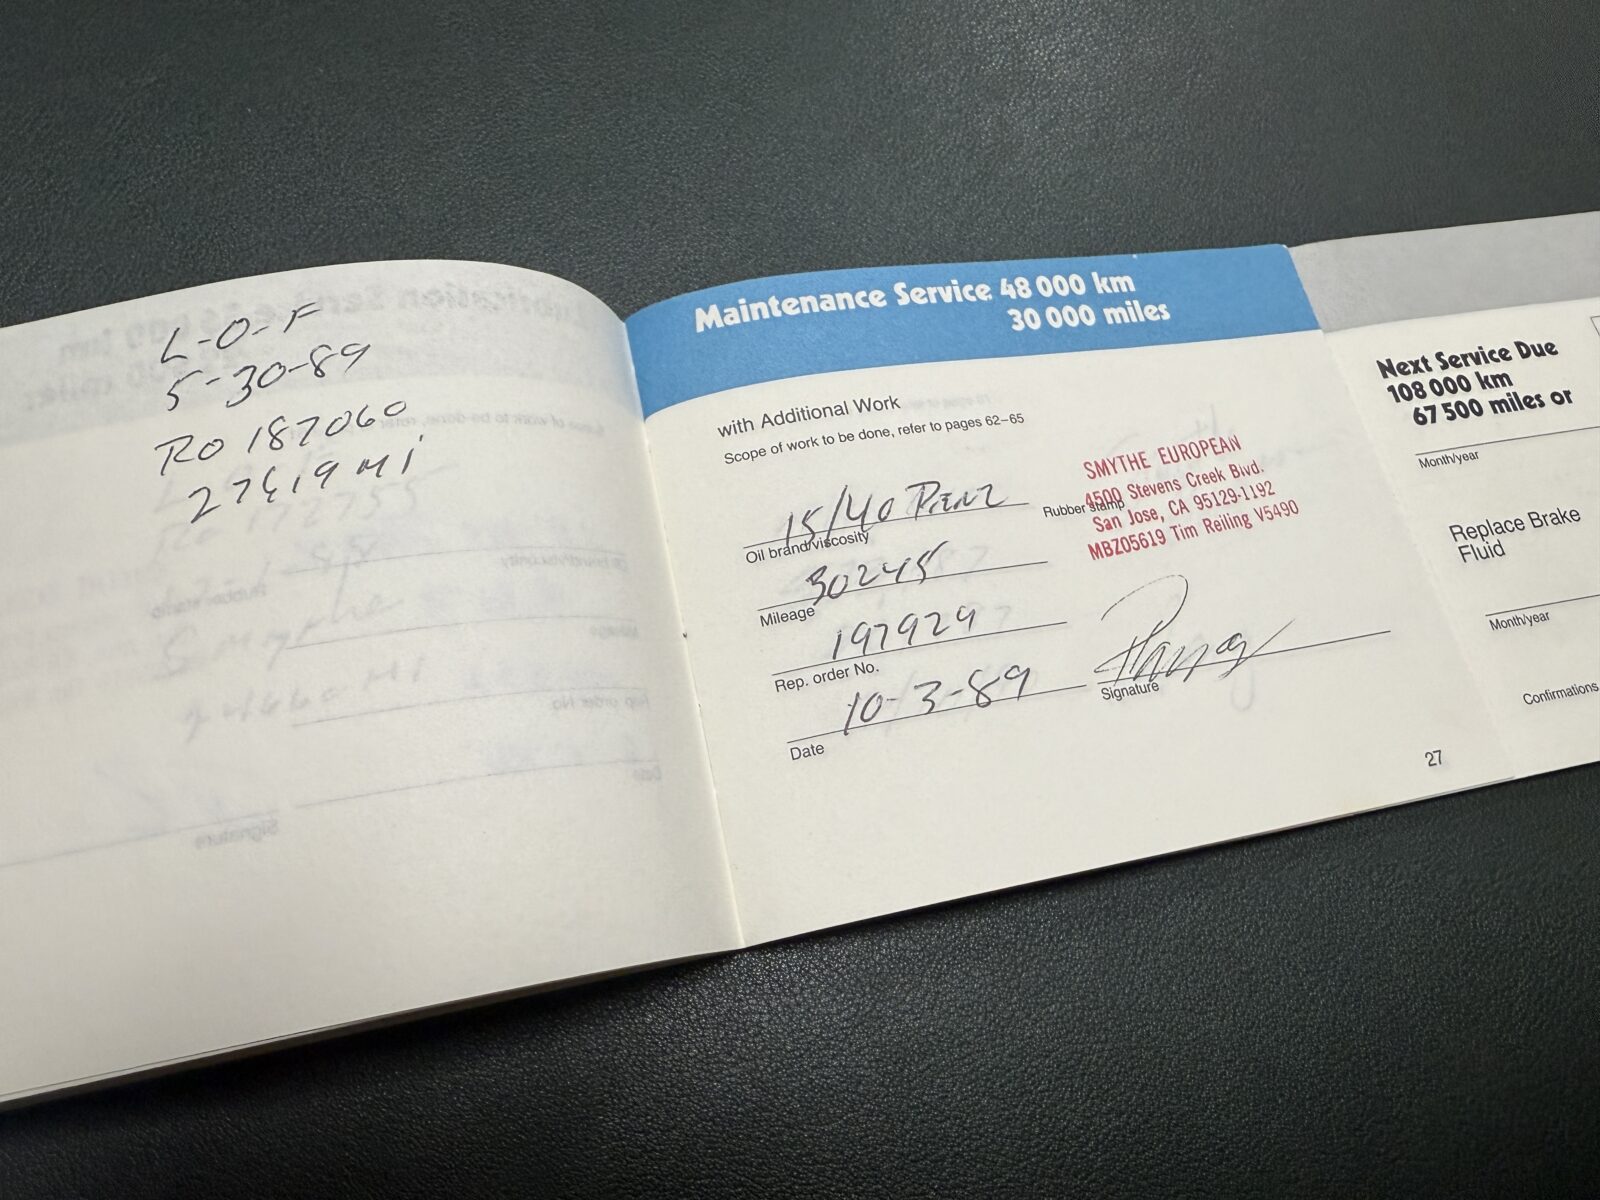 L-O-F
5-30-89
RO 187060
27619 MI
Maintenance Service 48 000 km
30 000 miles
with Additional Work
Scope of work to be done, refer to pages 62–65
15/40 PENZ
Oil brand/viscosity
30245
Mileage
197929
Rep. order No.
10-3-89
Date
Rubber stamp
SMYTHE EUROPEAN
4500 Stevens Creek Blvd.
San Jose, CA 95129-1192
MBZ05619 Tim Reiling V5490
Signature
27
Next Service Due
108 000 km
67 500 miles or
Month/year
Replace Brake
Fluid
Month/year
Confirmations